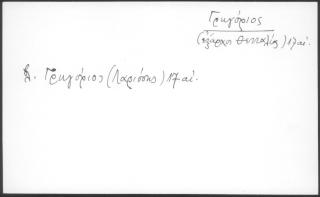 Γρηγόριος
(ἔξαρχος Θετταλίας) 17 αἰ.
Γρηγόριος (Λαρίσσης) 17 αἰ.